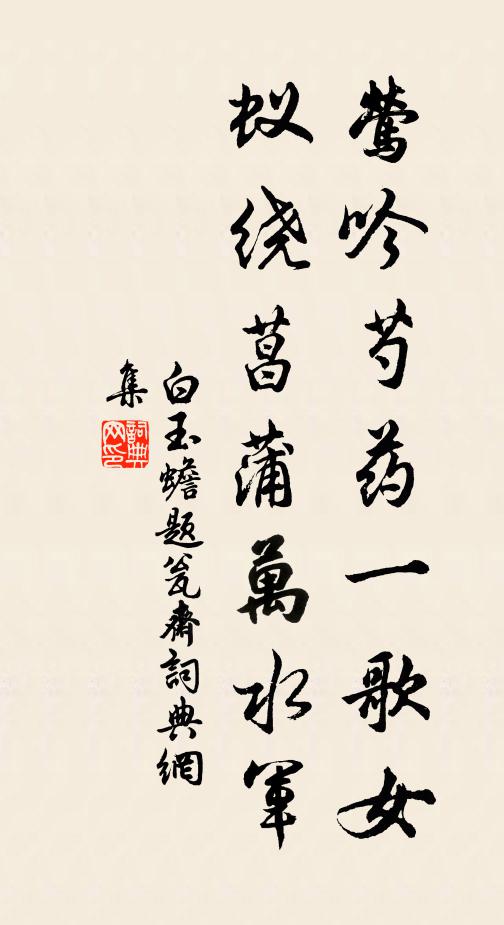 莺吟芍药一歌女
蚁绕菖蒲萬水軍
白玉蟾题瓮齋詞典網
集
詞典网印